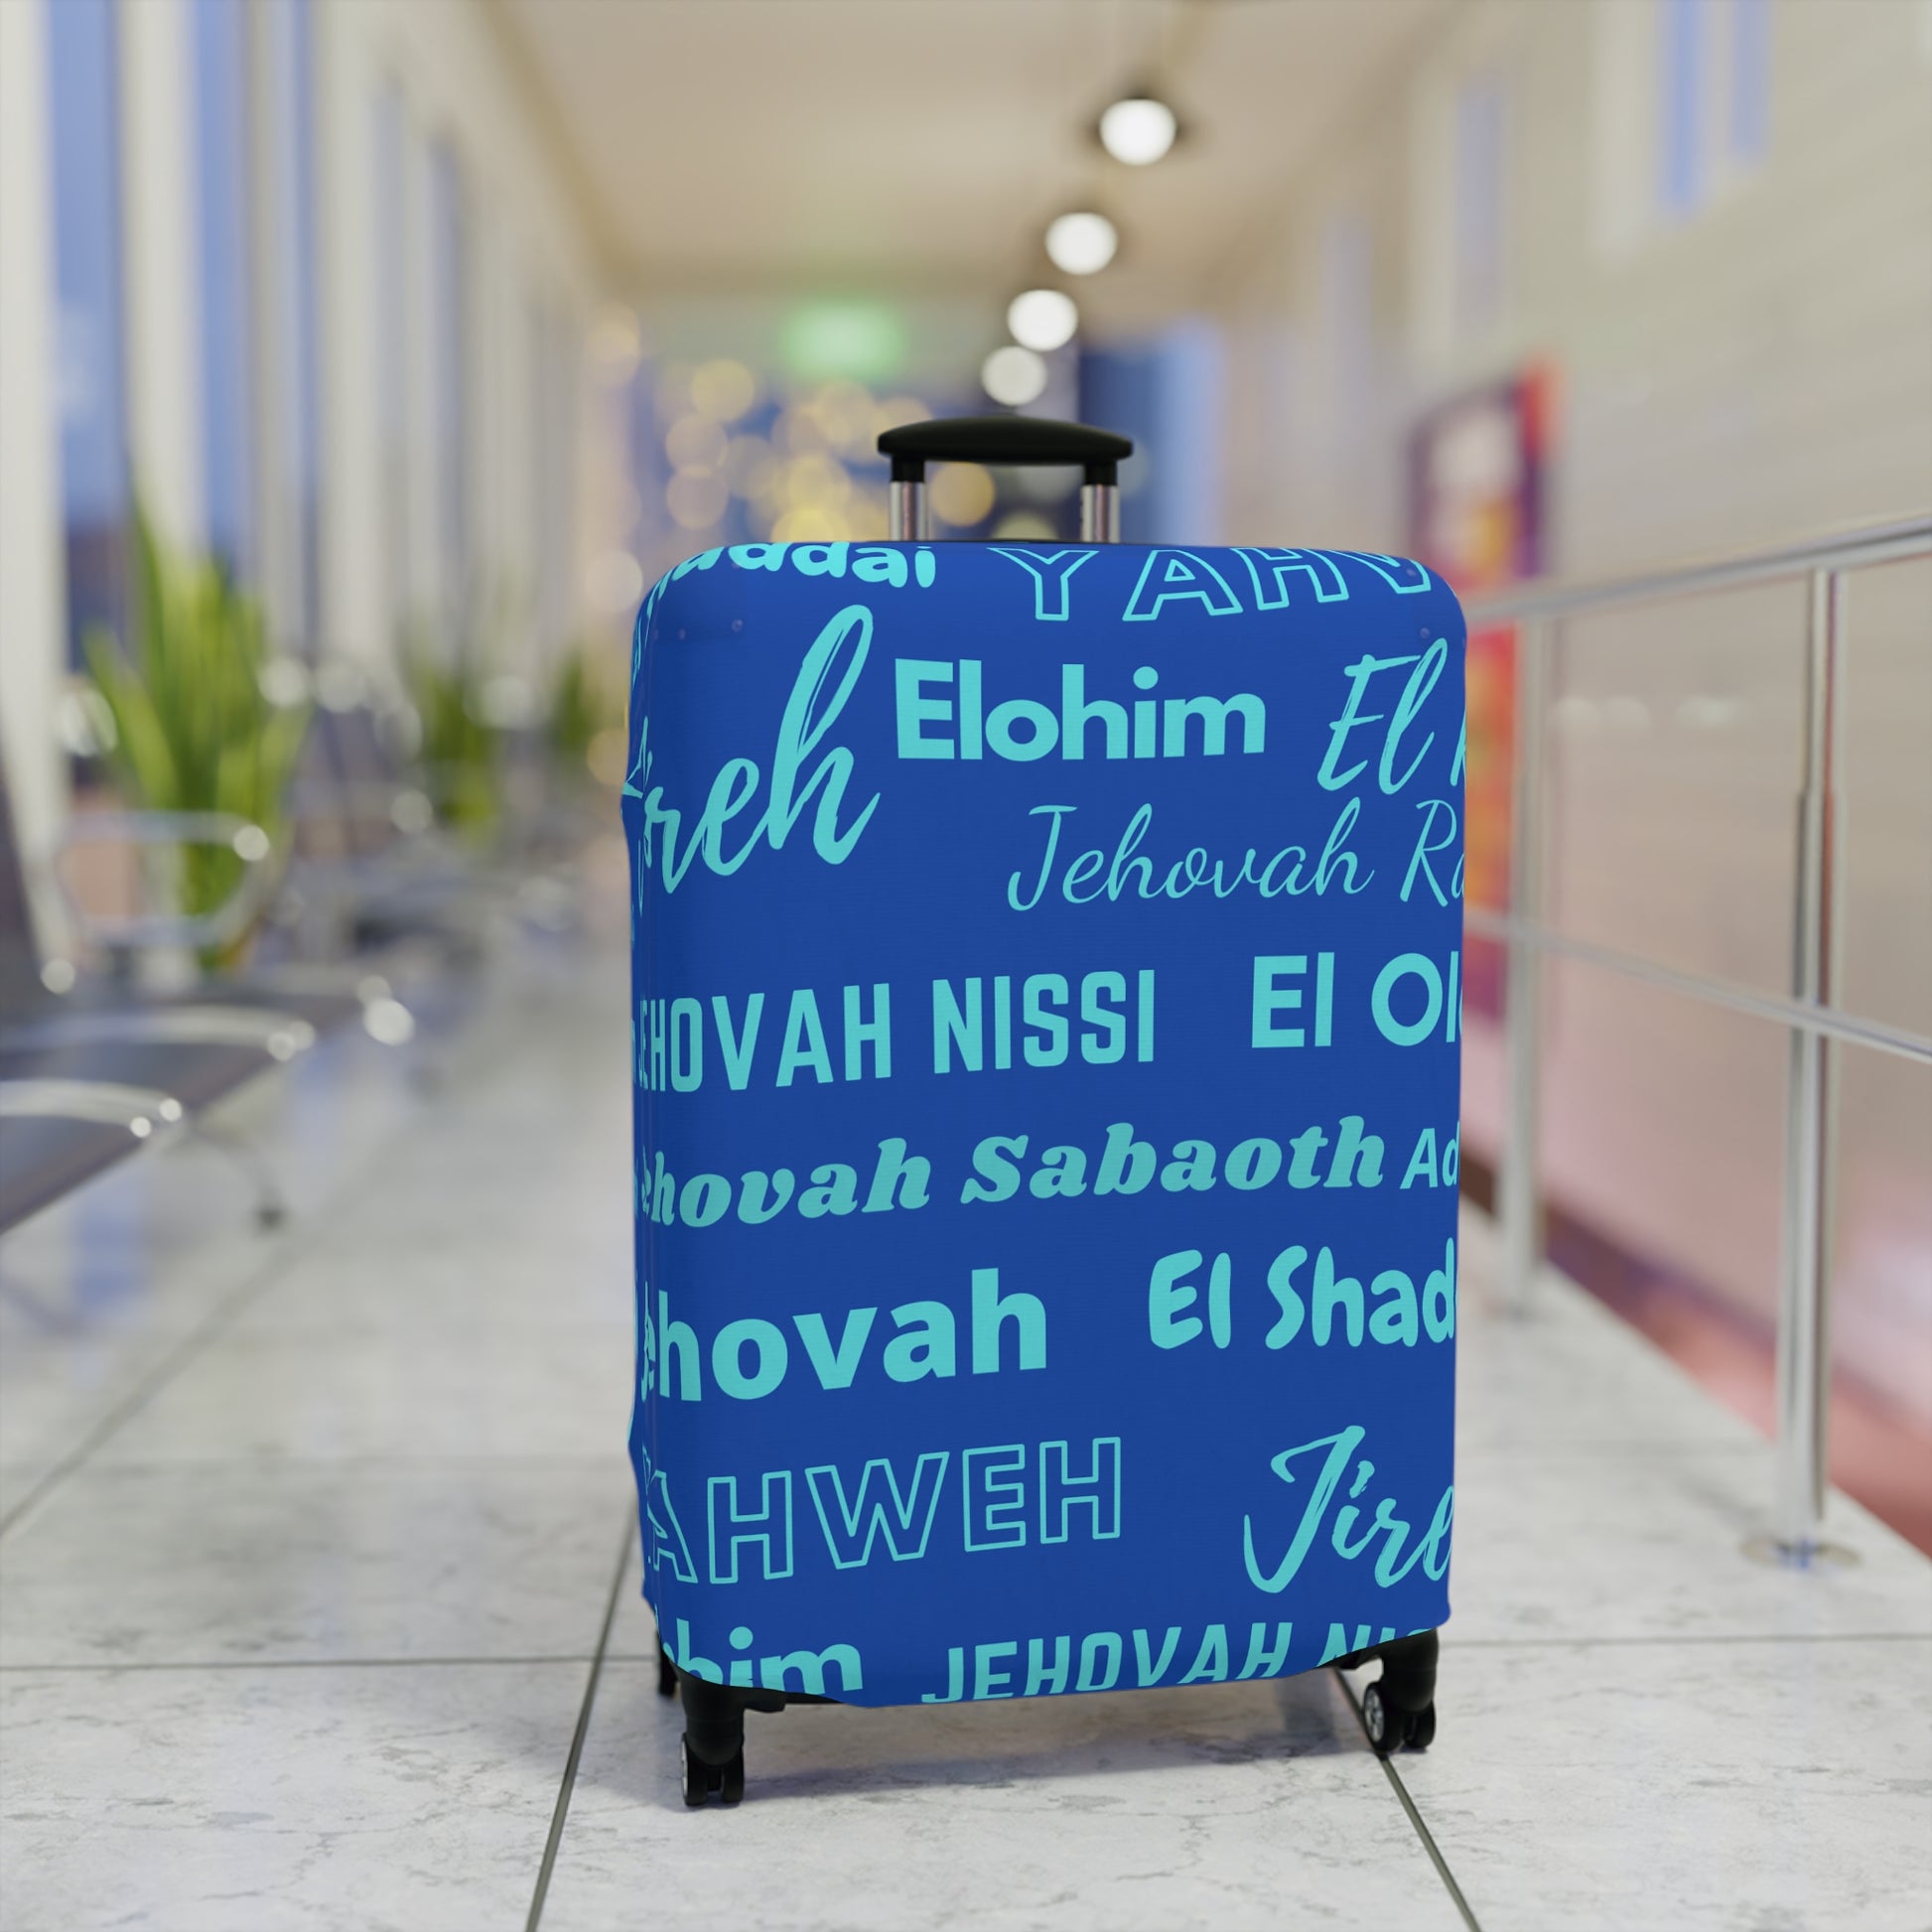 addai YAHV
Jireh Elohim El
Jehovah Ra
JEHOVAH NISSI El Ol
Jehovah Sabaoth Ad
Jehovah El Shad
YAHWEH Jire
him JEHOVAH NIS